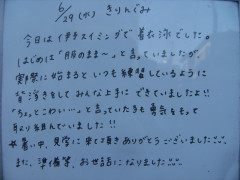 6/29(水) きりんぐみ
今日は伊東スイミングで着衣泳でした。
はじめは「服のまま〜」と言っていましたが、
実際に始まるといつも練習しているように
背浮きをしてみんな上手にできていましたよ!!
"ちょっとこわい…"と言っていた子も勇気をもって
取り組んでいました!!
※暑い中、見学に来て頂きありがとうございました。
また、準備等、お世話になりました。